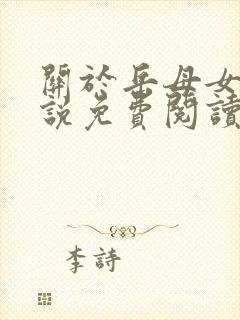 關於岳母女
說免費閱讀
李詩